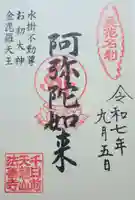 水掛不動尊
お初大神
金毘羅天王
阿弥陀如来
令和七年
九月五日
千日前
天龍山
法善寺